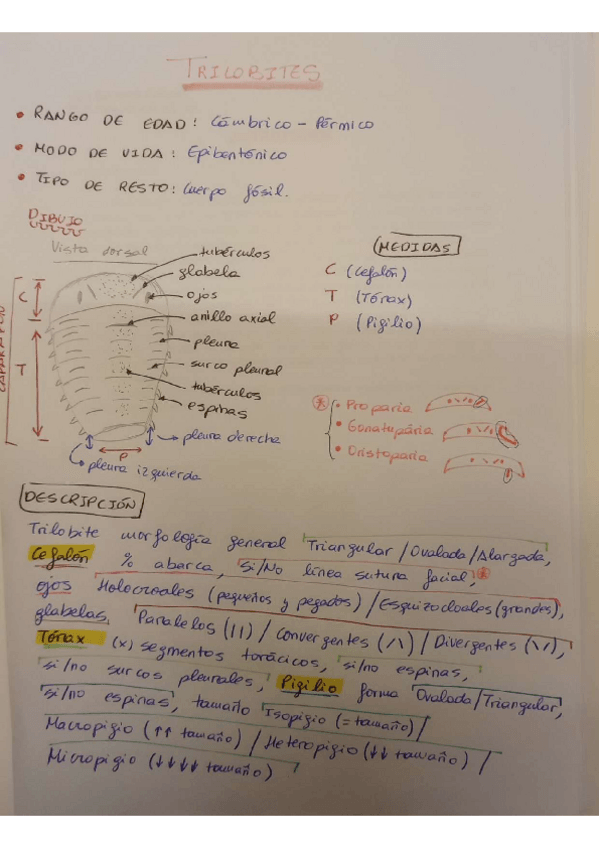 TRILOBITES
• RANGO DE EDAD: Cámbrico - Pérmico
• MODO DE VIDA: Epibentónico
• TIPO DE RESTO: Cuerpo fósil.
DIBUJO
Vista dorsal
tubérculos
glabela
ojos
anillo axial
pleura
surco pleural
tubérculos
espinas
pleura derecha
pleura izquierda
C
T
P
CAPARAZÓN
MEDIDAS
C (Cefalón)
T (Tórax)
P (Pigilio)
* • Proparia
• Gonatupária
• Oristoparia
DESCRIPCIÓN
Trilobite morfología general Triangular/Ovalada/Alargada,
Cefalón % abarca, Si/No línea sutura facial, *
ojos Holocroales (pequeños y pegados)/Esquizocloales (grandes),
glabelas, Paralelos (||)/Convergentes (/\)/Divergentes (\/),
Tórax (x) segmentos torácicos, si/no espinas,
si/no surcos pleurales, Pigilio forma Ovalada/Triangular,
si/no espinas, tamaño Isopigio (= tamaño)/
Macropigio (↑↑ tamaño)/Heteropigio (↓↓ tamaño)/
Micropigio (↓↓↓↓ tamaño)